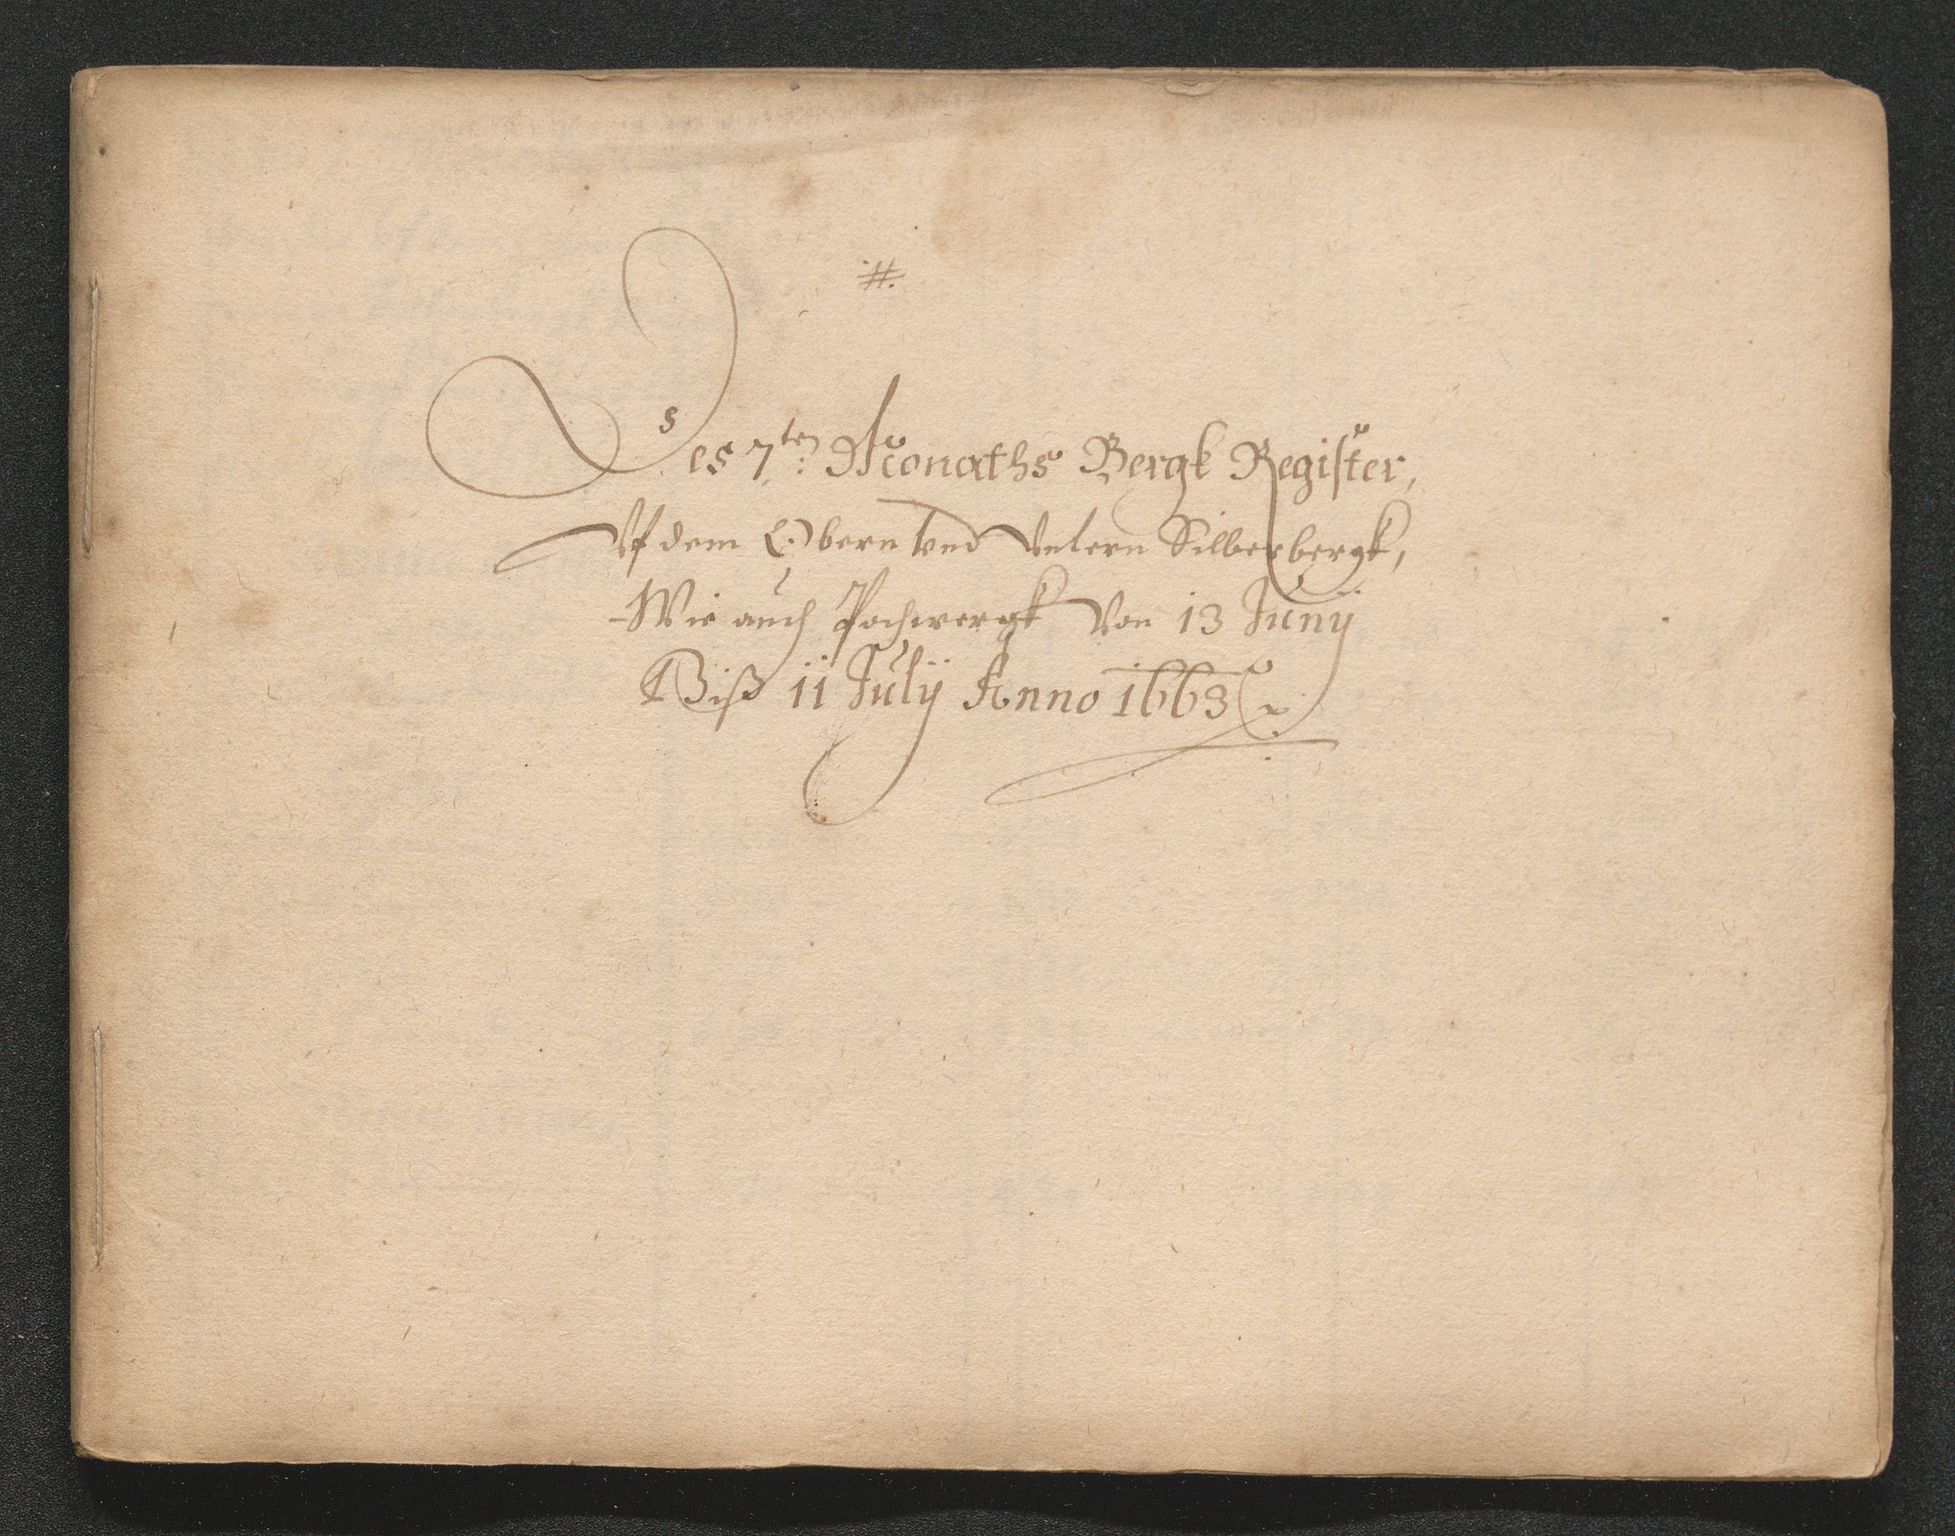 #.
Des 7ten: Monaths Bergk Register,
Vf dem Obern vnd Vntern Silberbergk,
Wie auch Pochwergk Von 13 Junÿ
Biß 11 Julÿ Anno 1663